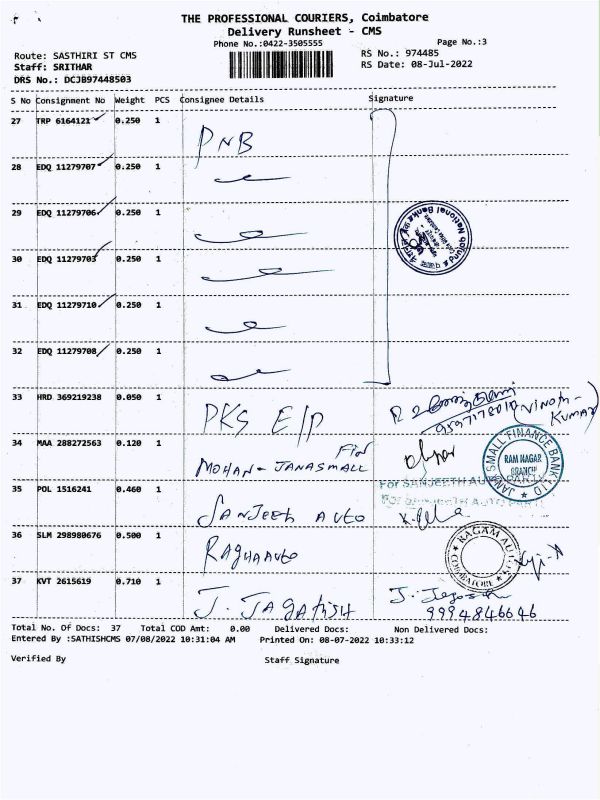 THE PROFESSIONAL COURIERS, Coimbatore
Delivery Runsheet - CMS
Phone No.:0422-3505555
Page No.:3
Route: SASTHIRI ST CMS
Staff: SRITHAR
DRS No.: DCJB97448503
RS No.: 974485
RS Date: 08-Jul-2022
S No Consignment No Weight PCS Consignee Details Signature
27 TRP 6164121 0.250 1 PNB
28 EDQ 11279707 0.250 1
29 EDQ 11279706 0.250 1
Punjab National Bank
30 EDQ 11279703 0.250 1
31 EDQ 11279710 0.250 1
32 EDQ 11279708 0.250 1
33 HRD 369219238 0.050 1 PKS E/P
9597178010 (VINOTH-KUMAR)
34 MAA 288272563 0.120 1 MOHAN - JANASMALL FIN
JANA SMALL FINANCE BANK LTD
RAM NAGAR
BRANCH
35 POL 1516241 0.460 1 SANJEETH AUTO
For SANJEETH AUTO PARTY
36 SLM 298980676 0.500 1 RAGHAAUTO
RAGAM AUTO
COIMBATORE
37 KVT 2615619 0.710 1 J. JAGATHISH
9994846646
Total No. Of Docs: 37 Total COD Amt: 0.00 Delivered Docs: Non Delivered Docs:
Entered By :SATHISHCMS 07/08/2022 10:31:04 AM Printed On: 08-07-2022 10:33:12
Verified By Staff Signature